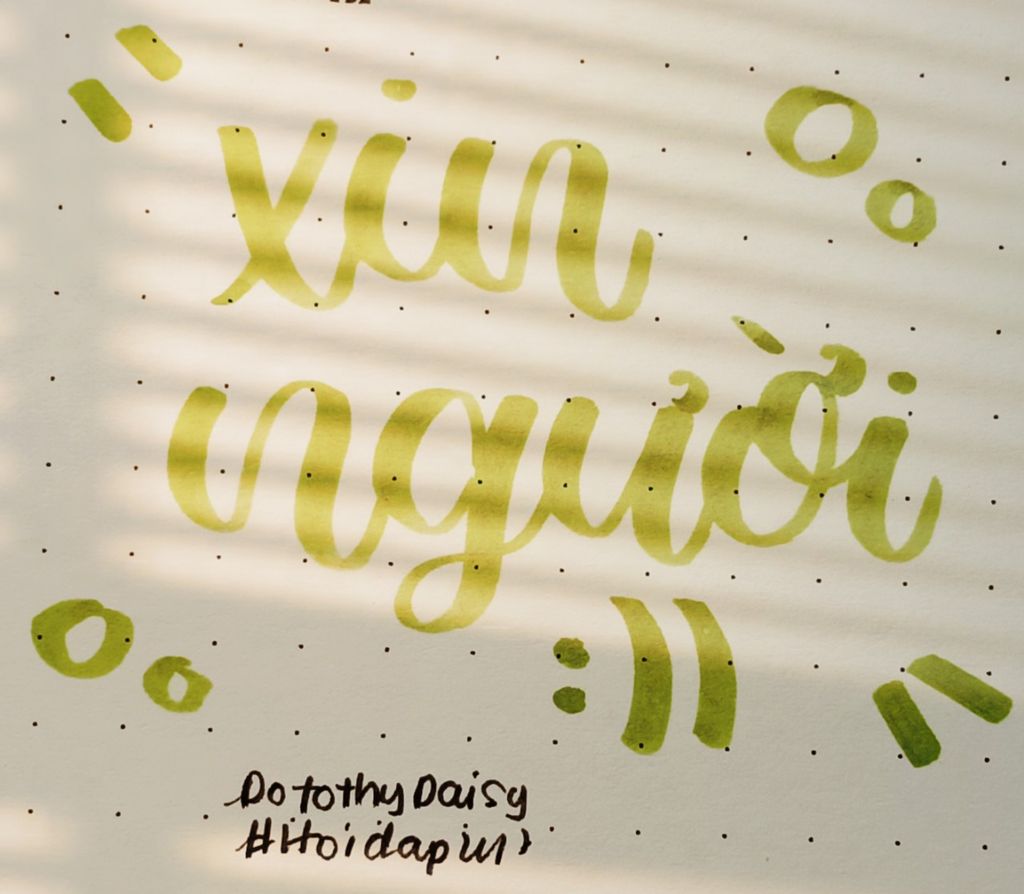 xin
người
:))
Dotothy Daisy